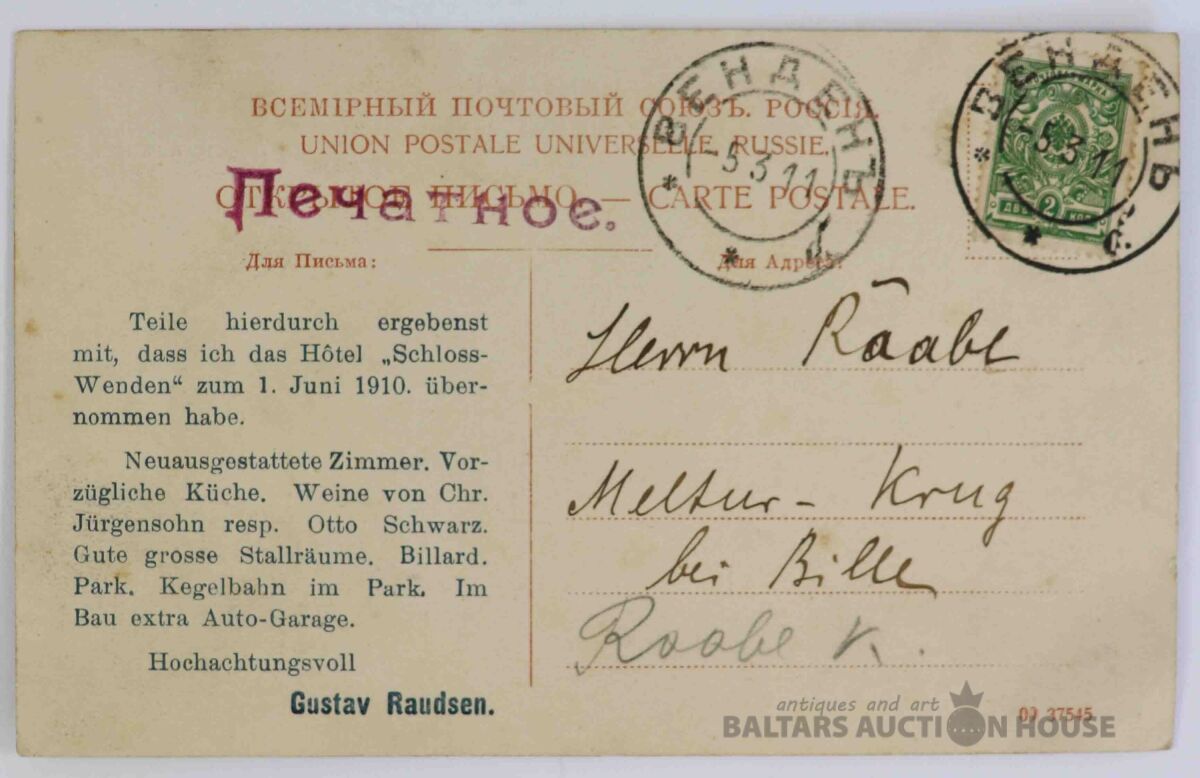 ВСЕМІРНЫЙ ПОЧТОВЫЙ СОЮЗЪ. РОССІЯ.
UNION POSTALE UNIVERSELLE. RUSSIE.
ОТКРЫТОЕ ПИСЬМО. — CARTE POSTALE.
Печатное.
ВЕНДЕНЪ
-5.3.11
б
ВЕНДЕНЪ
-5.3.11
б
ДВѢ 2 КОП
Для Письма:
Для Адреса:
Teile hierdurch ergebenst
mit, dass ich das Hôtel „Schloss-
Wenden“ zum 1. Juni 1910. über-
nommen habe.
Neuausgestattete Zimmer. Vor-
zügliche Küche. Weine von Chr.
Jürgensohn resp. Otto Schwarz.
Gute grosse Stallräume. Billard.
Park. Kegelbahn im Park. Im
Bau extra Auto-Garage.
Hochachtungsvoll
Gustav Raudsen.
Herrn Raabe
Meltur- Krug
bei Bille
Raabe K.
37545
antiques and art
BALTARS AUCTION HOUSE